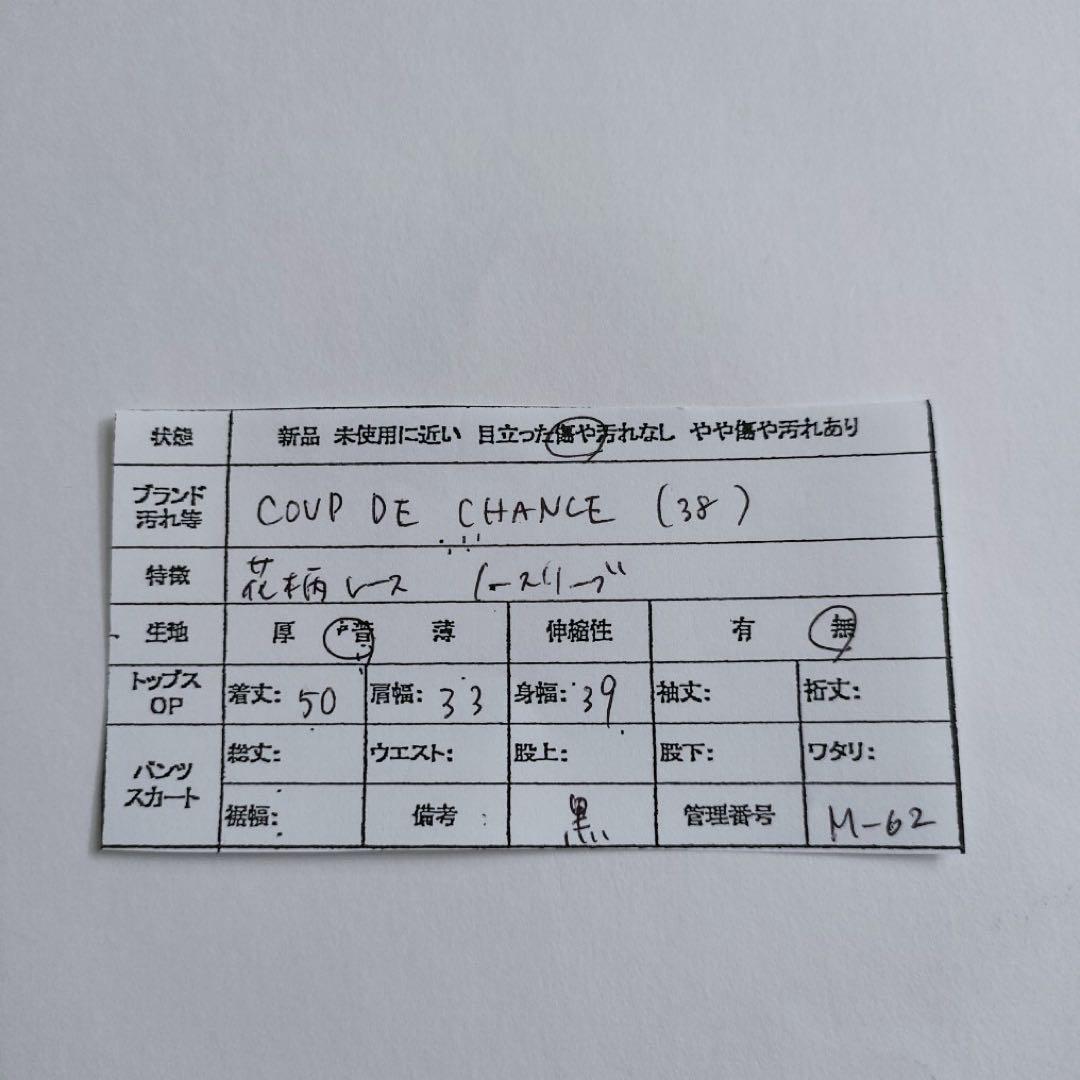 状態 新品 未使用に近い 目立った傷や汚れなし やや傷や汚れあり
ブランド
汚れ等
COUP DE CHANCE (38)
特徴 花柄レース ノースリーブ
生地 厚 普 薄 伸縮性 有 無
トップス
OP
着丈: 50 肩幅: 33 身幅: 39 袖丈: 裄丈:
パンツ
スカート
総丈: ウエスト: 股上: 股下: ワタリ:
裾幅: 備考 : 黒 管理番号 M-62